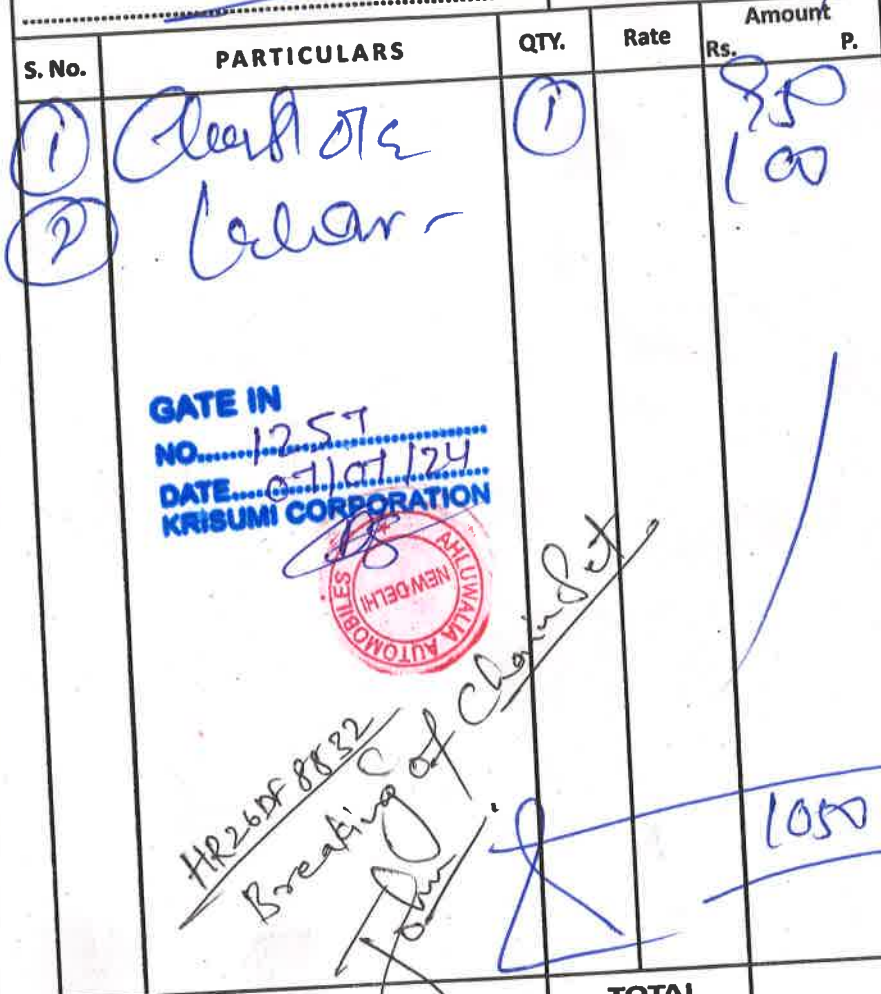 S. No. PARTICULARS QTY. Rate Amount
Rs. P.
1 1 950
2 Labour - 100
GATE IN
NO. 1257
DATE 07/07/24
KRISUMI CORPORATION
AHLUWALIA AUTOMOBILES
NEW DELHI
HR26DF8832
Breaking of Chain Set
1050
TOTAL